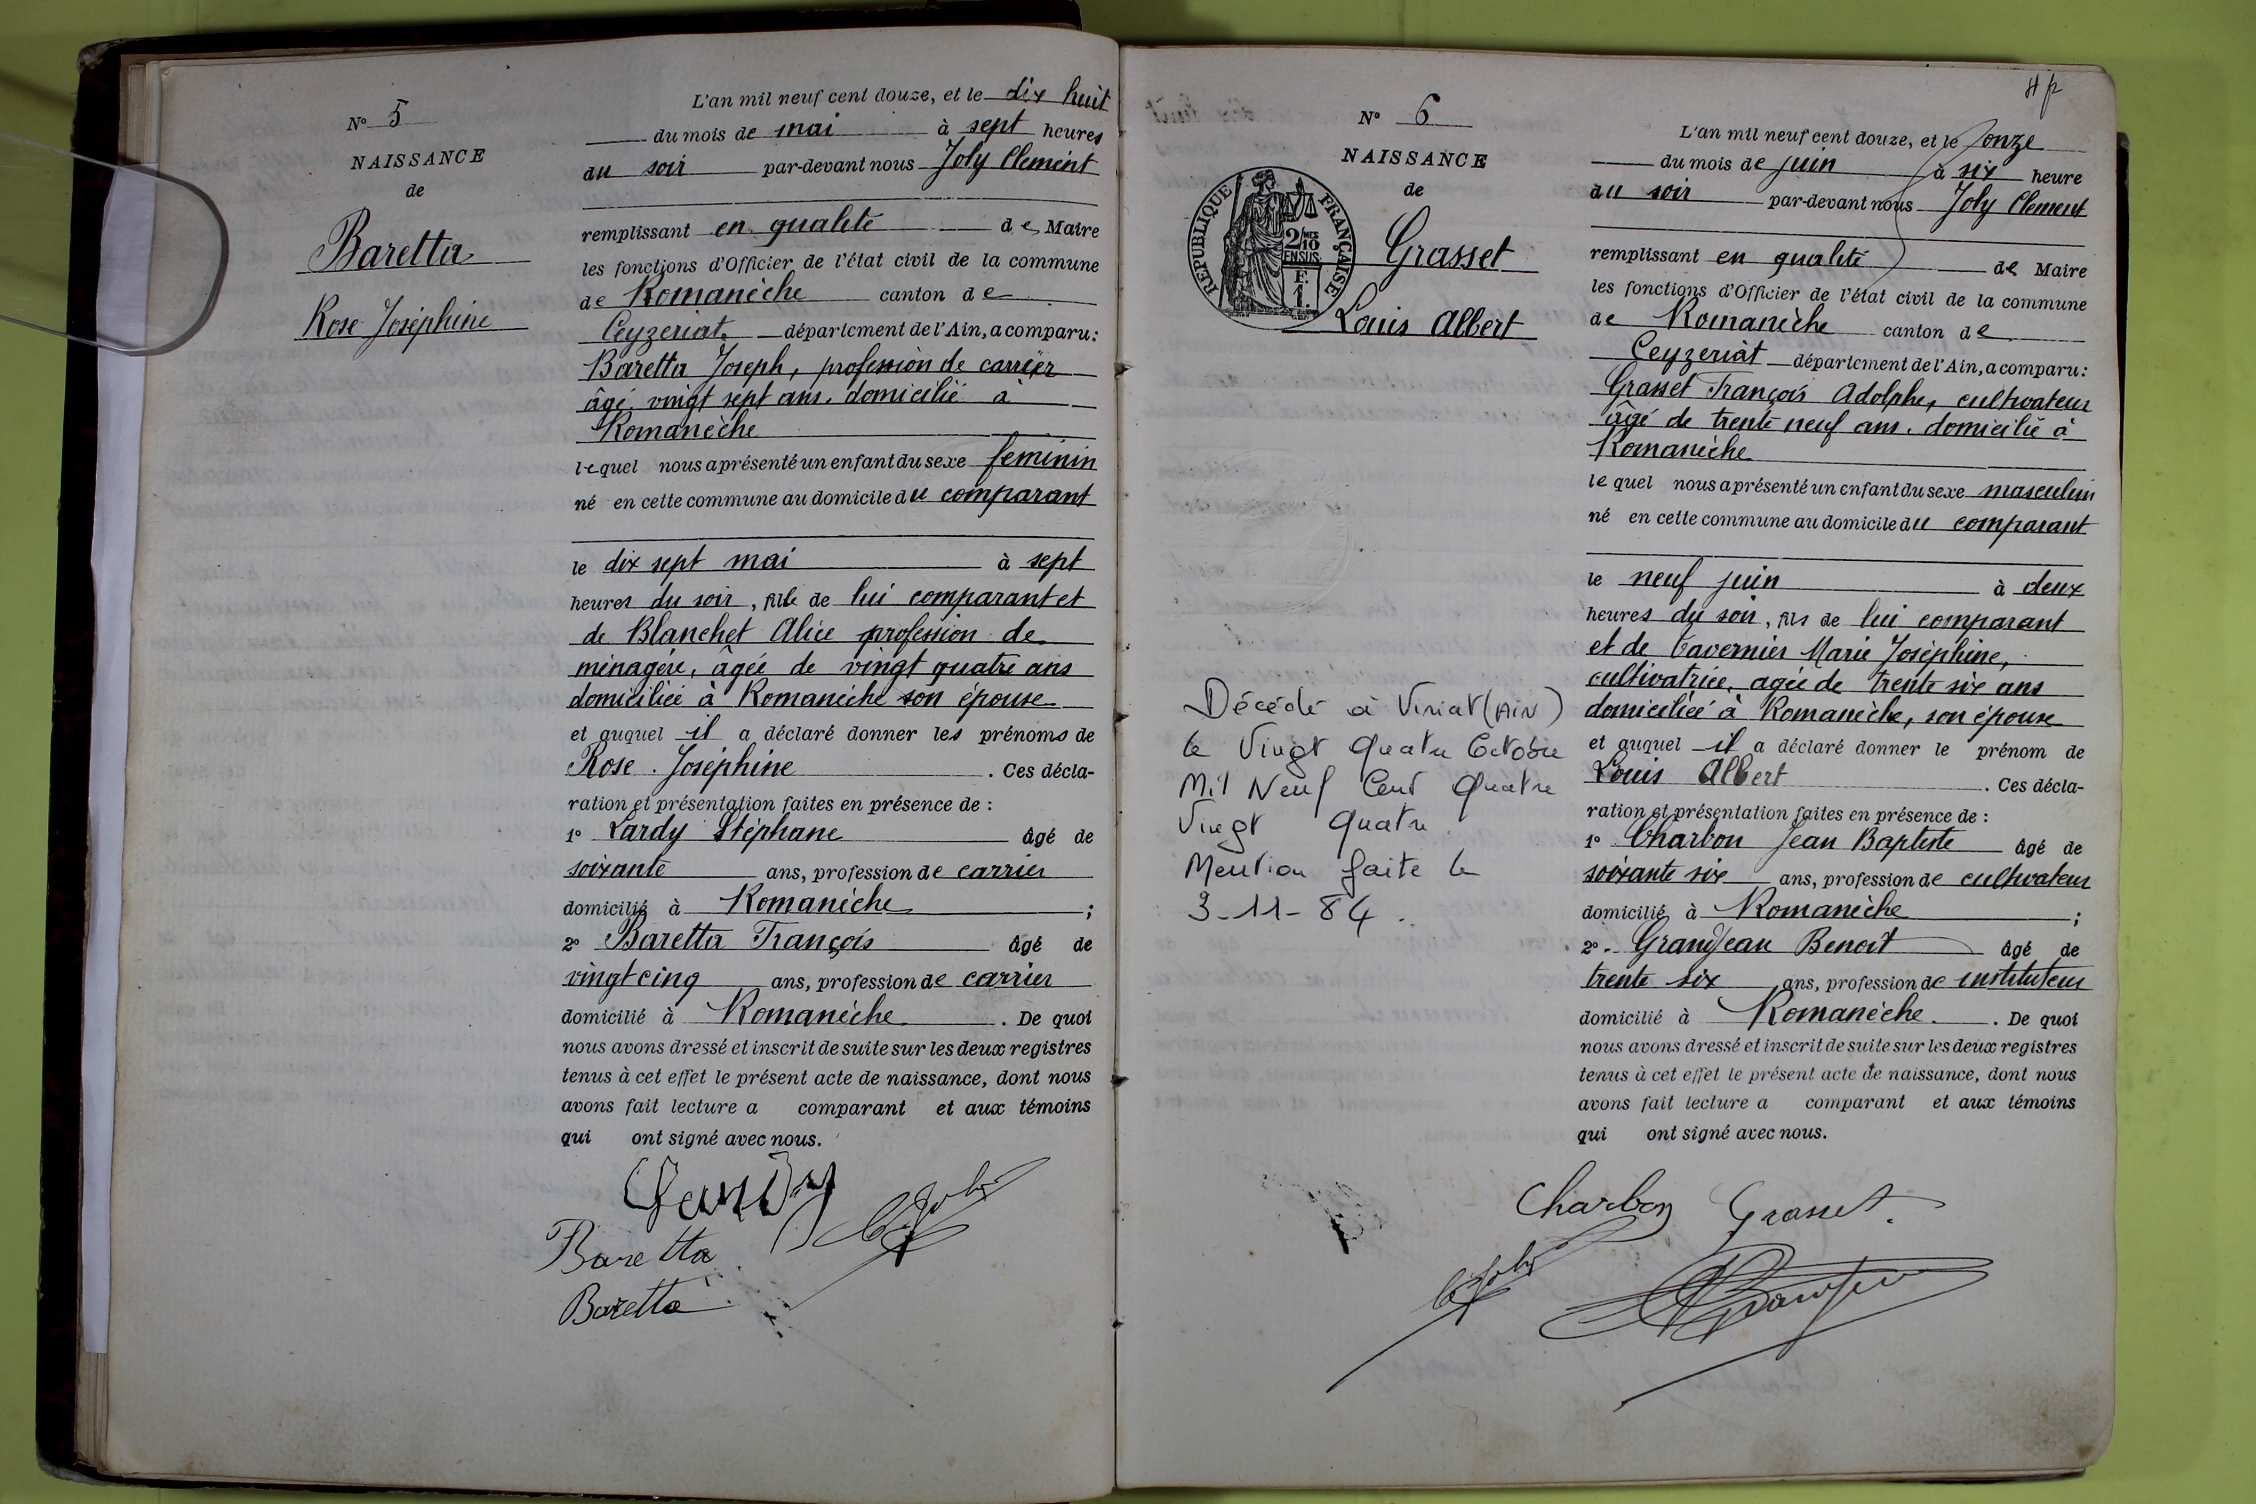 N° 5
NAISSANCE
de
Baretta
Rose Joséphine
L'an mil neuf cent douze, et le dix huit
du mois de mai à sept heures
du soir par-devant nous Joly Clement
remplissant en qualité de Maire
les fonctions d'Officier de l'état civil de la commune
de Romanèche canton de
Ceyzeriat département de l'Ain, a comparu:
Baretta Joseph, profession de carrier
âgé vingt sept ans. domicilié à
Romanèche
lequel nous a présenté un enfant du sexe feminin
né en cette commune au domicile du comparant
le dix sept mai à sept
heures du soir, fille de lui comparant et
de Blanchet Alice profession de
ménagère, âgée de vingt quatre ans
domiciliée à Romanèche son épouse
et auquel il a déclaré donner les prénoms de
Rose. Joséphine. Ces décla-
ration et présentation faites en présence de :
1° Lardy Stéphane âgé de
soixante ans, profession de carrier
domicilié à Romanèche ;
2° Baretta François âgé de
vingt cinq ans, profession de carrier
domicilié à Romanèche. De quoi
nous avons dressé et inscrit de suite sur les deux registres
tenus à cet effet le présent acte de naissance, dont nous
avons fait lecture a comparant et aux témoins
qui ont signé avec nous.
Lardy
C. Joly
Baretta
Baretta
N° 6
NAISSANCE
de
REPUBLIQUE FRANÇAISE
2/10 MES
EN SUS
F.
1.
Grasset
Louis Albert
Décédé à Viriat (AIN)
le Vingt Quatre Octobre
Mil Neuf Cent Quatre
Vingt Quatre
Mention faite le
3-11-84.
L'an mil neuf cent douze, et le onze
du mois de juin à six heure
du soir par-devant nous Joly Clement
remplissant en qualité de Maire
les fonctions d'Officier de l'état civil de la commune
de Romanèche canton de
Ceyzeriat département de l'Ain, a comparu:
Grasset François Adolphe, cultivateur
âgé de trente neuf ans. domicilié à
Romanèche
lequel nous a présenté un enfant du sexe masculin
né en cette commune au domicile du comparant
le neuf juin à deux
heures du soir, fils de lui comparant
et de Tavernier Marie Joséphine,
cultivatrice, agée de trente six ans
domiciliée à Romanèche, son épouse
et auquel il a déclaré donner le prénom de
Louis Albert. Ces décla-
ration et présentation faites en présence de :
1° Charbon Jean Baptiste âgé de
soixante six ans, profession de cultivateur
domicilié à Romanèche ;
2°. Grandjean Benoit âgé de
trente six ans, profession de instituteur
domicilié à Romanèche. De quoi
nous avons dressé et inscrit de suite sur les deux registres
tenus à cet effet le présent acte de naissance, dont nous
avons fait lecture a comparant et aux témoins
qui ont signé avec nous.
Charbon Grasset.
C. Joly
Grandjean